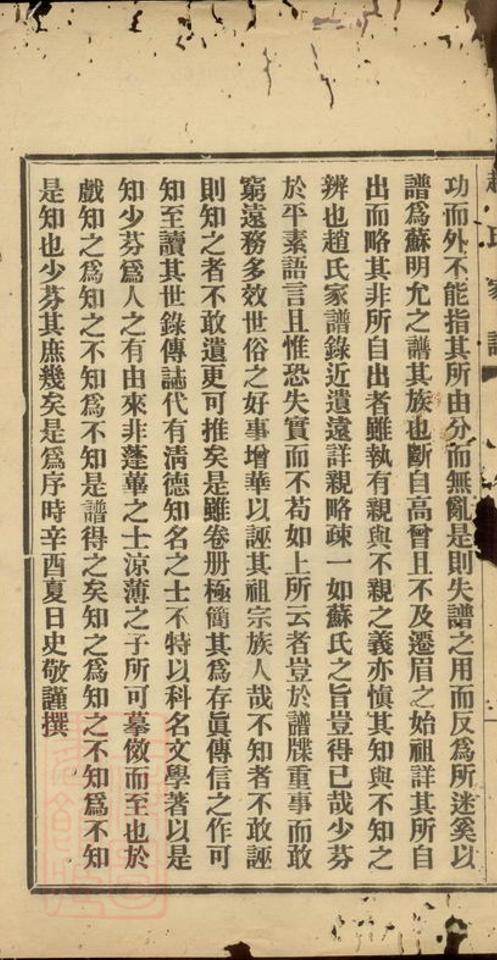 趙氏家譜
功而外不能指其所由分而無亂是則失譜之用而反為所迷奚以
譜爲蘇明允之譜其族也斷自高曾且不及遷眉之始祖詳其所自
出而略其非所自出者雖執有親與不親之義亦慎其知與不知之
辨也趙氏家譜錄近遺遠詳親略疎一如蘇氏之旨豈得已哉少芬
於平素語言且惟恐失實而不苟如上所云者豈於譜牒重事而敢
窮遠務多效世俗之好事增華以誣其祖宗族人哉不知者不敢誣
則知之者不敢遺更可推矣是雖卷册極簡其爲存眞傳信之作可
知至讀其世錄傳誌代有淸德知名之士不特以科名文學著以是
知少芬爲人之有由來非蓬蓽之士涼薄之子所可摹倣而至也於
戲知之爲知之不知爲不知是譜得之矣知之爲知之不知爲不知
是知也少芬其庶幾矣是爲序時辛酉夏日史敬謹撰